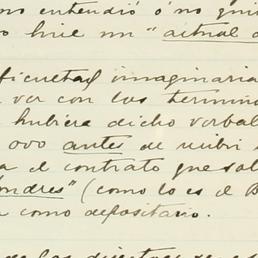 no entendió ó no qui
o hice un "actual
ficultad imaginaria
ver con los termino
hubiera dicho verbal
ovo antes de recibi
a el contrato que sol
ondres" (como lo es el B
como depositario.